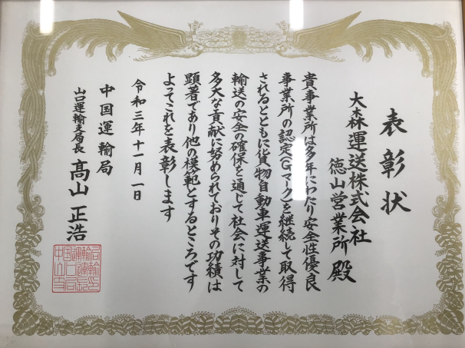 表彰状
大森運送株式会社
徳山営業所 殿
貴事業所は多年にわたり安全性優良
事業所の認定(Gマーク)を継続して取得
されるとともに貨物自動車運送事業の
輸送の安全の確保を通じて社会に対して
多大な貢献に努められておりその功績は
顕著であり他の模範とするところです
よってこれを表彰します
令和三年十一月一日
中国運輸局
山口運輸支局長 髙山 正浩